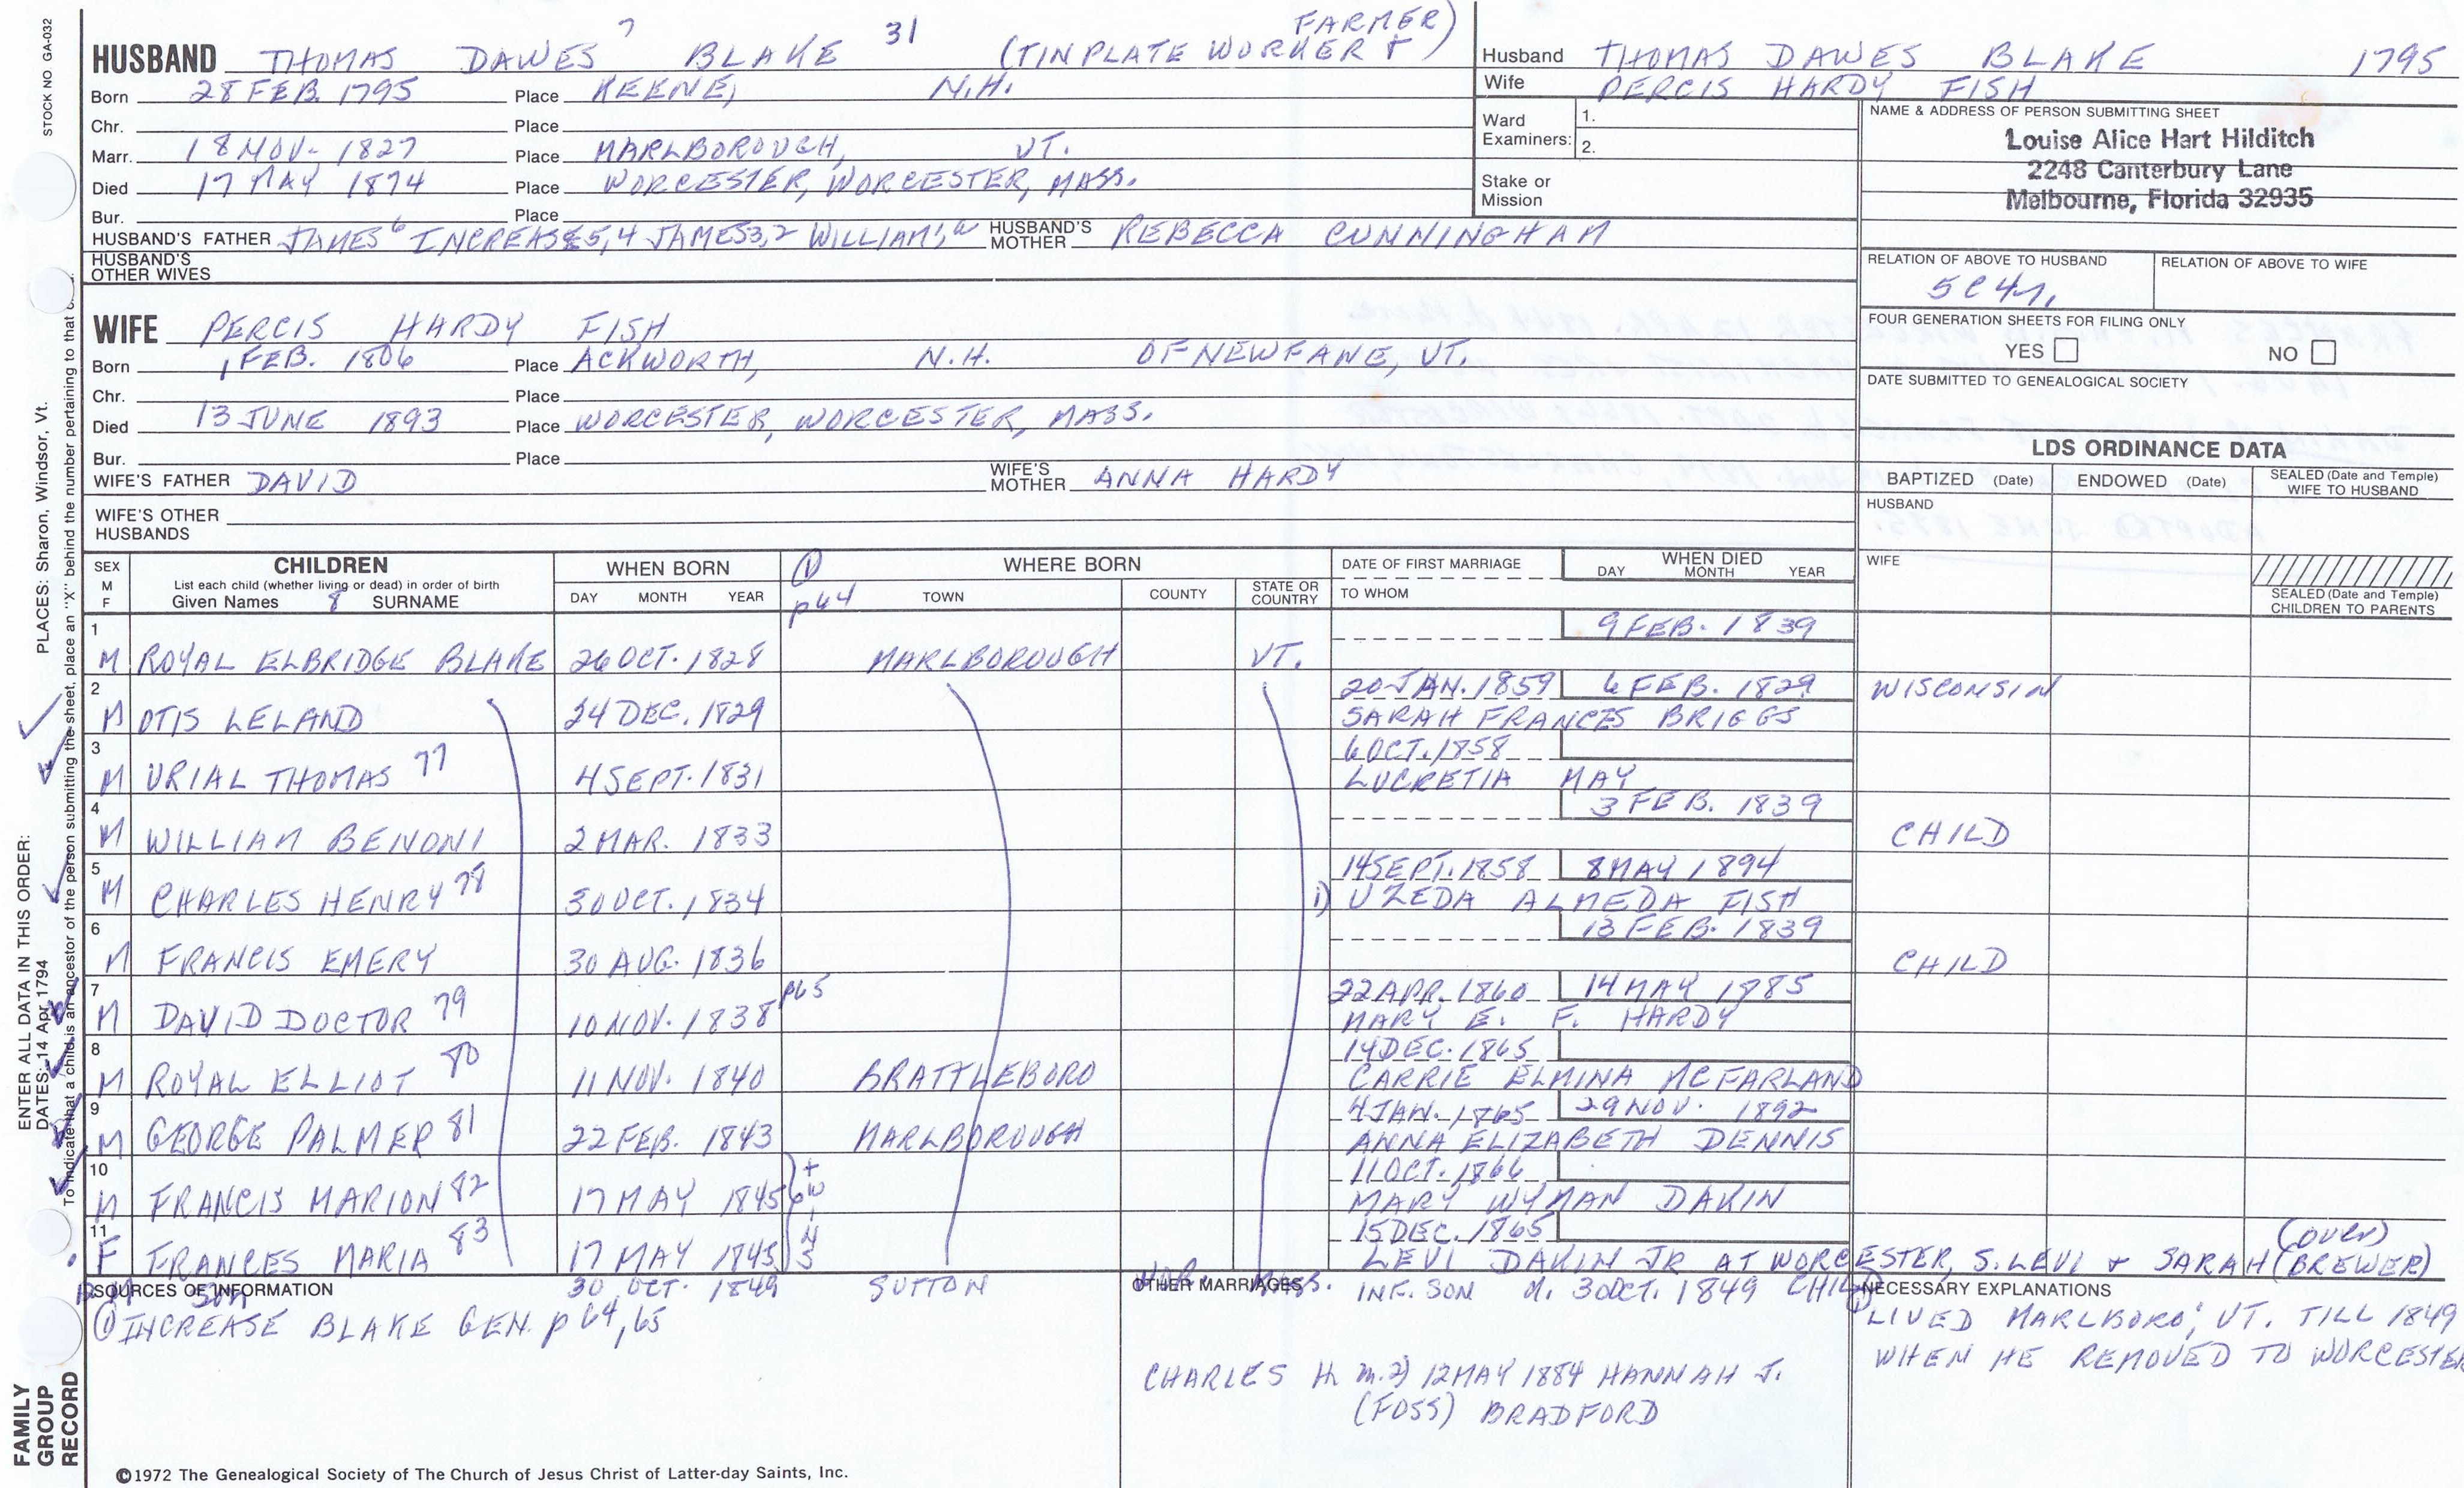 STOCK NO. GA-032
HUSBAND THOMAS DAWES 7 BLAKE 31 (TINPLATE WORKER + FARMER)
Born 28 FEB. 1795 Place KEENE, N.H.
Chr. Place
Marr. 18 NOV. 1827 Place MARLBOROUGH, VT.
Died 17 MAY 1874 Place WORCESTER, WORCESTER, MASS.
Bur. Place
HUSBAND'S FATHER JAMES 6 INCREASE 5,4 JAMES 3,2 WILLIAM 1, HUSBAND'S MOTHER REBECCA CUNNINGHAM
HUSBAND'S OTHER WIVES
Husband THOMAS DAWES BLAKE 1795
Wife PERCIS HARDY FISH
Ward Examiners: 1.
2.
Stake or Mission
NAME & ADDRESS OF PERSON SUBMITTING SHEET
Louise Alice Hart Hilditch
2248 Canterbury Lane
Melbourne, Florida 32935
RELATION OF ABOVE TO HUSBAND RELATION OF ABOVE TO WIFE
5C4r.
FOUR GENERATION SHEETS FOR FILING ONLY
YES NO
DATE SUBMITTED TO GENEALOGICAL SOCIETY
WIFE PERCIS HARDY FISH
Born 1 FEB. 1806 Place ACKWORTH, N.H. OF NEWFANE, VT.
Chr. Place
Died 13 JUNE 1893 Place WORCESTER, WORCESTER, MASS.
Bur. Place
WIFE'S FATHER DAVID WIFE'S MOTHER ANNA HARDY
WIFE'S OTHER HUSBANDS
LDS ORDINANCE DATA
BAPTIZED (Date) ENDOWED (Date) SEALED (Date and Temple) WIFE TO HUSBAND
HUSBAND
WIFE
SEALED (Date and Temple) CHILDREN TO PARENTS
SEX M F
CHILDREN
List each child (whether living or dead) in order of birth
Given Names 8 SURNAME
WHEN BORN
DAY MONTH YEAR
1 p64
WHERE BORN
TOWN COUNTY STATE OR COUNTRY
DATE OF FIRST MARRIAGE
TO WHOM
WHEN DIED
DAY MONTH YEAR
1 9 FEB. 1839
M ROYAL ELBRIDGE BLAKE 26 OCT. 1828 MARLBOROUGH VT.
2 20 JAN. 1859 6 FEB. 1829 WISCONSIN
M OTIS LELAND 24 DEC. 1829 SARAH FRANCES BRIGGS
3 6 OCT. 1858
M URIAL THOMAS 77 4 SEPT. 1831 LUCRETIA MAY
4 3 FEB. 1839
M WILLIAM BENONI 2 MAR. 1833 CHILD
5 14 SEPT. 1858 8 MAY 1894
M CHARLES HENRY 78 30 OCT. 1834 1) UZEDA ALMEDA FISH
6 13 FEB. 1839
M FRANCIS EMERY 30 AUG. 1836 CHILD
7 p65 22 APR. 1860 14 MAY 1885
M DAVID DOCTOR 79 10 NOV. 1838 MARY E. F. HARDY
8 14 DEC. 1865
M ROYAL ELLIOT 80 11 NOV. 1840 BRATTLEBORO CARRIE ELMINA MCFARLAND
9 4 JAN. 1865 29 NOV. 1892
M GEORGE PALMER 81 22 FEB. 1843 MARLBOROUGH ANNA ELIZABETH DENNIS
10 11 OCT. 1866
M FRANCIS MARION 82 17 MAY 1845 MARY WYMAN DAKIN
11 15 DEC. 1865 (OVER)
F FRANCES MARIA 83 17 MAY 1845 LEVI DAKIN JR AT WORCESTER, S. LEVI + SARAH (BREWER)
M SON 30 OCT. 1849 SUTTON WOR. MASS. INF. SON d. 30 OCT. 1849 CHILD
SOURCES OF INFORMATION
1 INCREASE BLAKE GEN. p 64, 65
OTHER MARRIAGES
CHARLES H. m. 2) 12 MAY 1884 HANNAH J.
(FOSS) BRADFORD
NECESSARY EXPLANATIONS
LIVED MARLBORO, VT. TILL 1849
WHEN HE REMOVED TO WORCESTER
ENTER ALL DATA IN THIS ORDER:
PLACES: Sharon, Windsor, Vt.
DATES: 14 Apr. 1794
To indicate that a child is an ancestor of the person submitting the sheet, place an "X" behind the number pertaining to that
FAMILY GROUP RECORD
©1972 The Genealogical Society of The Church of Jesus Christ of Latter-day Saints, Inc.